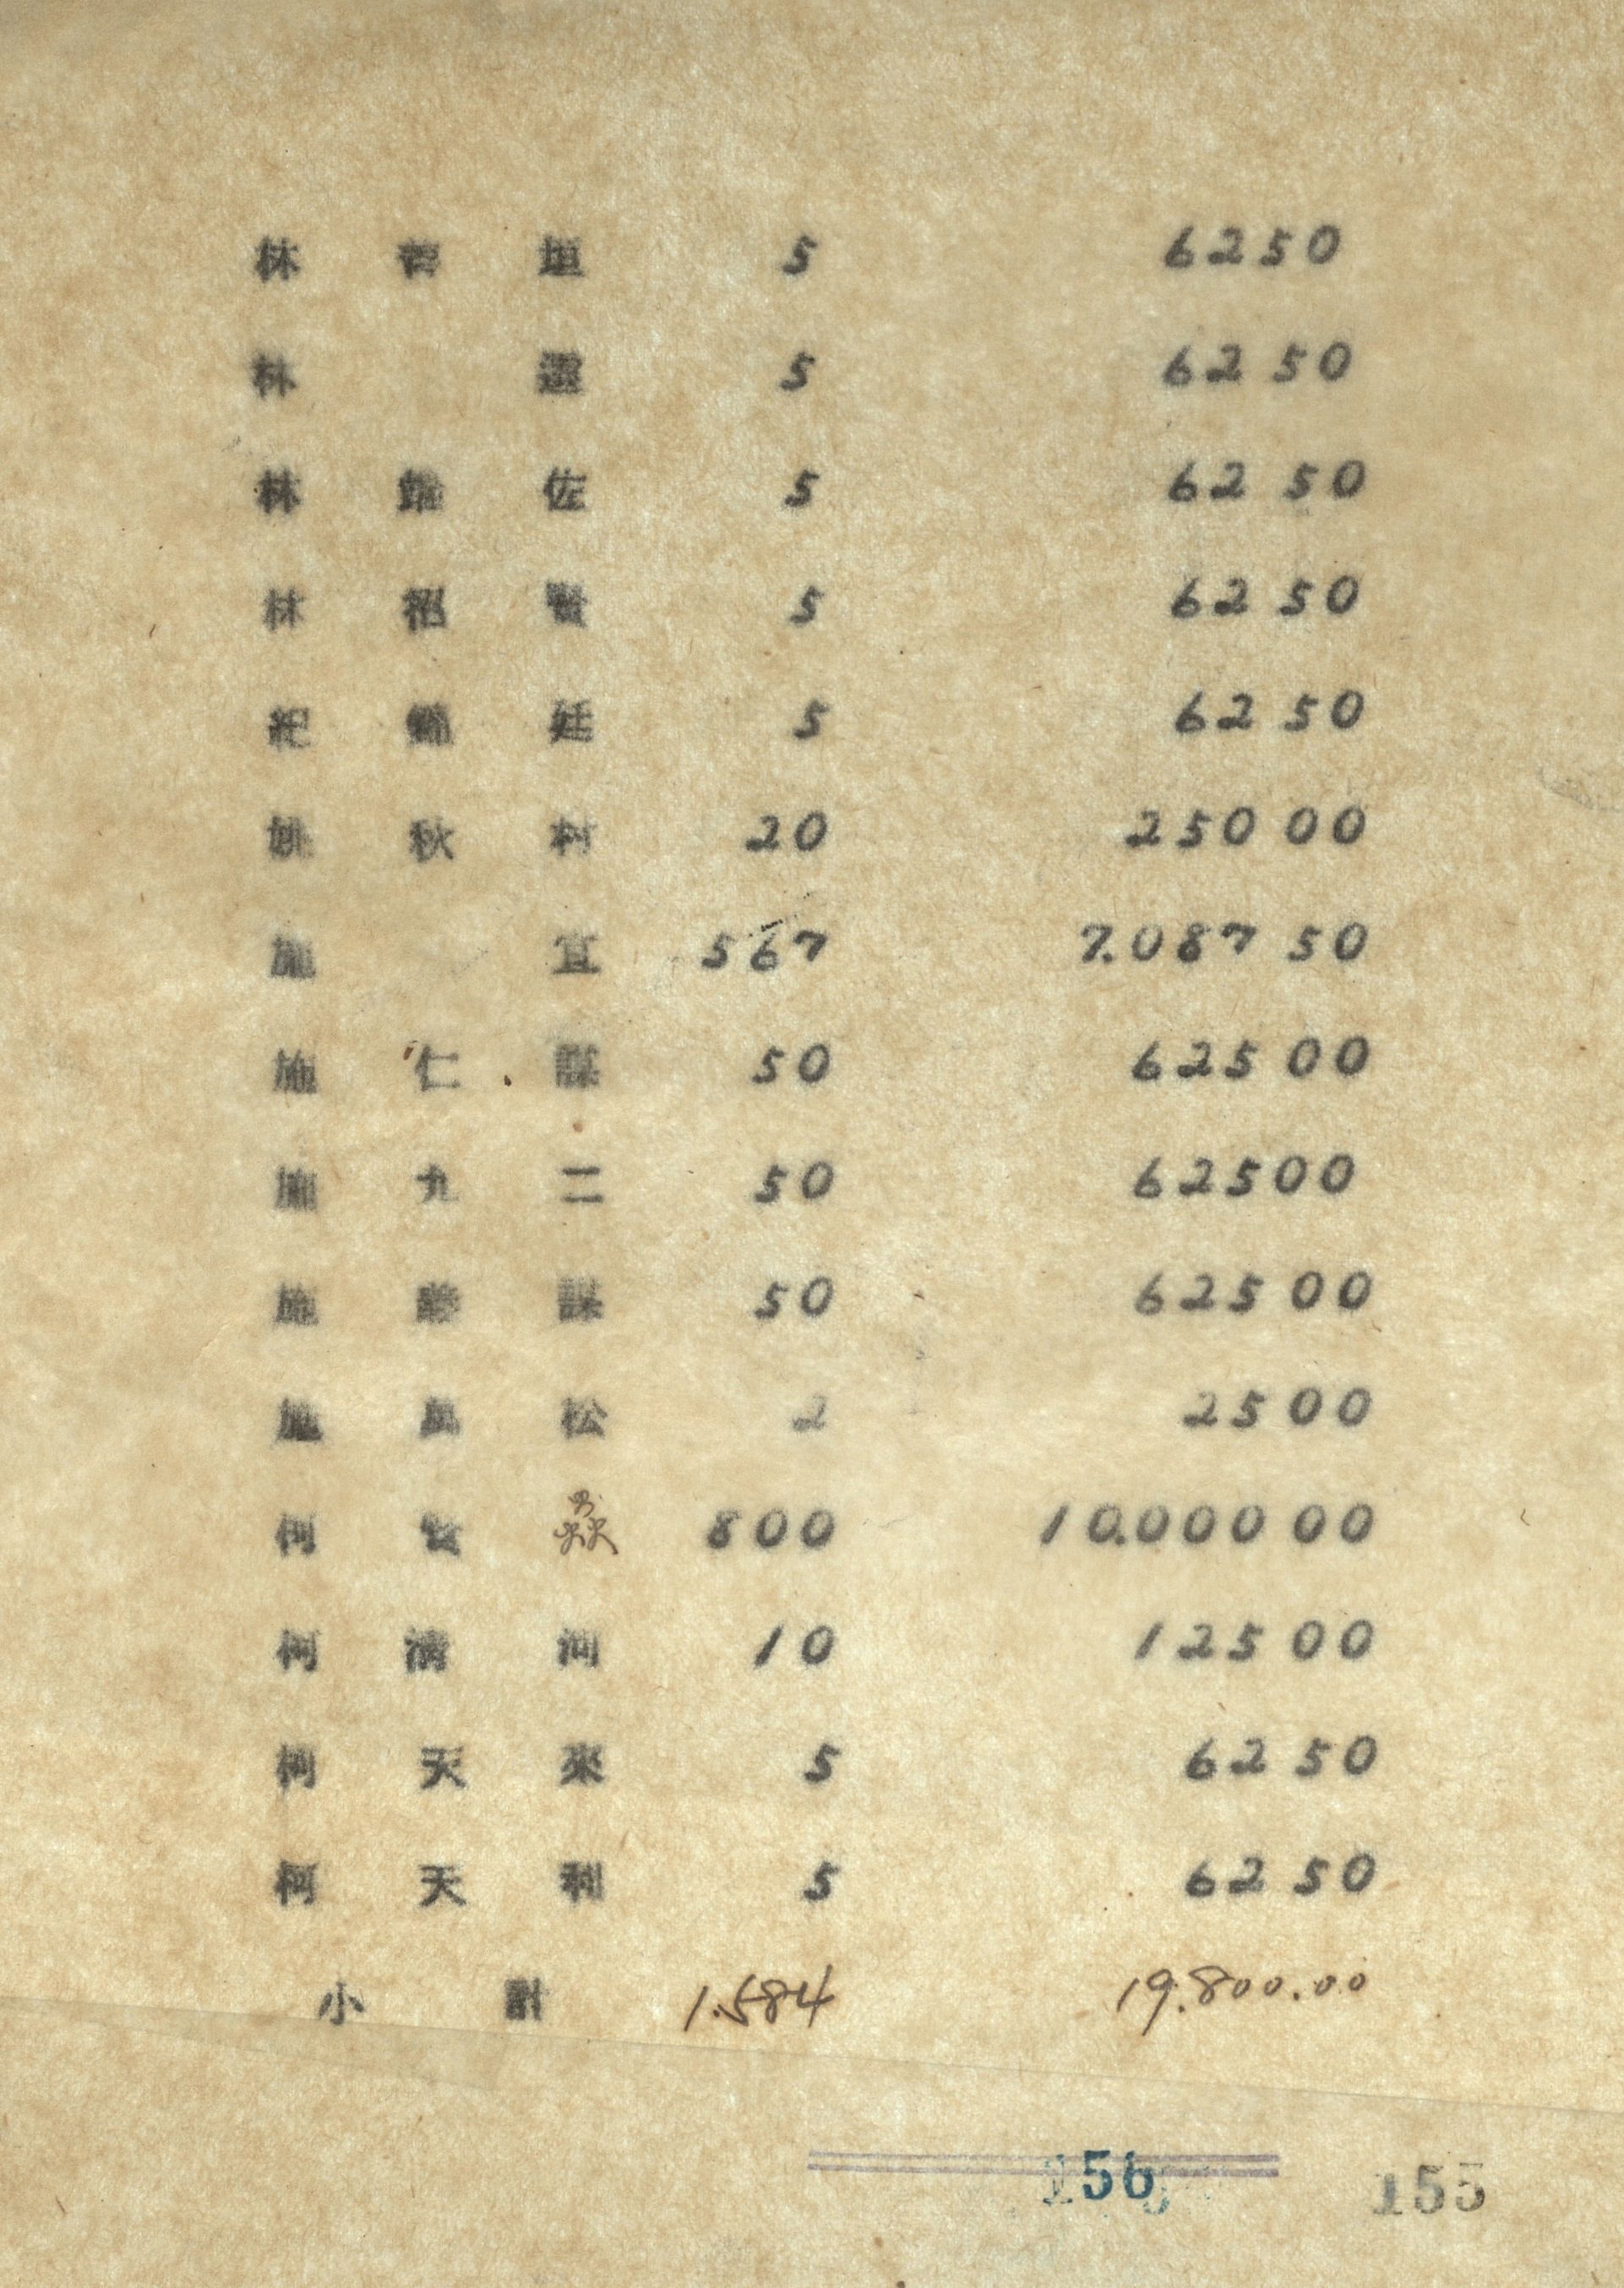 林 垣 5 6250
林 選 5 6250
林 佐 5 6250
林 賢 5 6250
紀 廷 5 6250
姚 秋 柯 20 250 00
施 宜 567 7.087 50
施 仁 謀 50 625 00
施 九 二 50 62500
施 謀 50 625 00
施 松 2 2500
何 800 10.000 00
何 清 10 125 00
何 天 來 5 6250
何 天 利 5 6250
小 計 1.584 19.800.00
156 155